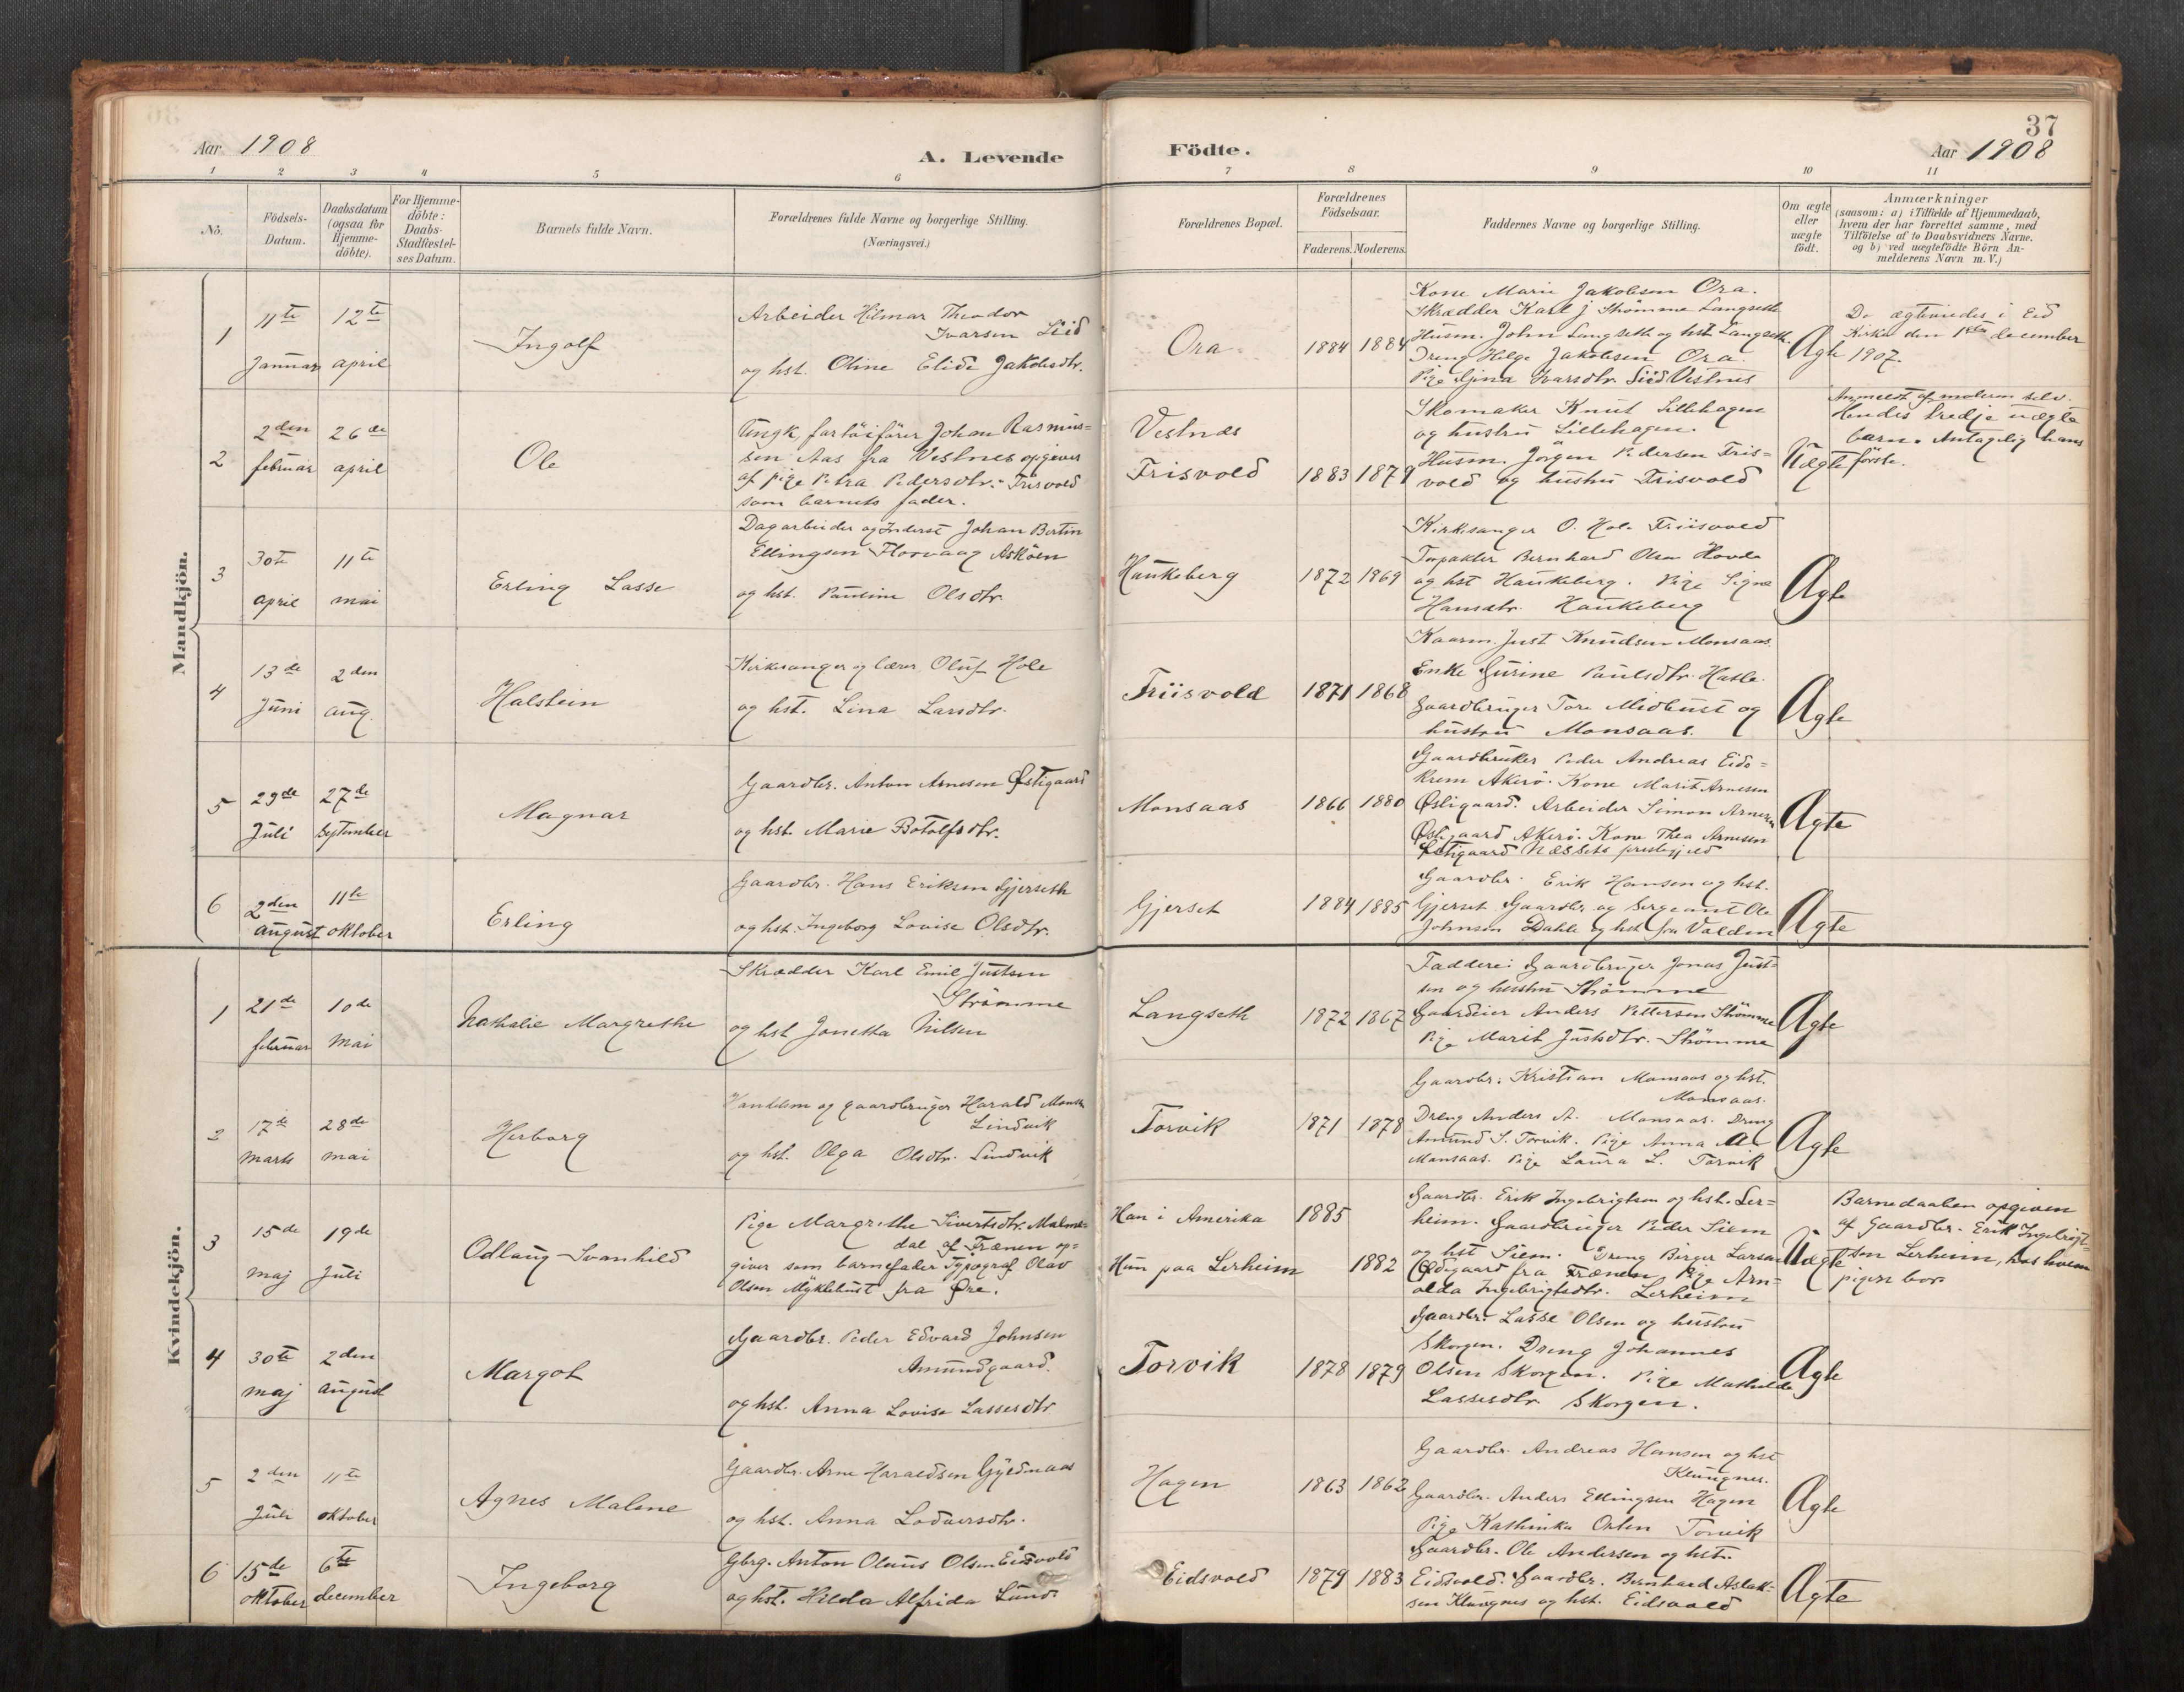 Aar 1908
A. Levende
Födte.
37
Aar 1908
1 2 3 4 5 6 7 8 9 10 11
No.
Födsels-Datum.
Daabsdatum (ogsaa for Hjemmedöbte).
For Hjemmedöbte: Daabs-Stadfæstelses Datum.
Barnets fulde Navn.
Forældrenes fulde Navne og borgerlige Stilling.
(Næringsvei.)
Forældrenes Bopæl.
Forældrenes Födselsaar.
Faderens. Moderens.
Faddernes Navne og borgerlige Stilling.
Om ægte eller uægte födt.
Anmærkninger
(saasom: a) i Tilfælde af Hjemmedaab,
hvem der har forrettet samme, med
Tilföielse af to Daabsvidners Navne,
og b) ved uægtefödte Börn Anmelderens Navn m. V.)
Mandkjön.
1
11te Januar
12te april
Ingolf
Arbeider Hilmar Theodor
Ivarsen Liid
og hst. Oline Elide Jakobsdtr.
Ora
1884 1884
Kone Marie Jakobsen Ora.
Skrædder Karl J Strömme Langseth
Husm. John Langseth og hst. Langseth.
Dreng Helge Jakobsen Ora.
Pige Gina Ivarsdtr. Liid Vestnes
Ægte
De ægteviedes i Eid
Kirke den 1ste december
1907.
2
2den februar
26de april
Ole
Ungk. fartöiförer Johan Rasmus=
sen Aas fra Vestnes opgives
af pige Petra Pedersdtr. Frisvold
som barnets fader.
Vestnæs
Frisvold
1883 1879
Skomaker Knut Lillehagen
og hustru Lillehagen.
Husm. Jörgen Pedersen Fris=
vold og hustru Frisvold
Uægte
Anmeldt af moderen selv.
Hendes tredje uægte
barn. Antagelig hans
förste.
3
30te april
11te mai
Erling Lasse
Dagarbeider og Inderst Johan Bertin
Ellingsen Florvaag Asköen
og hst. Pauline Olsdtr.
Haukeberg
1872 1869
Kirkesanger O. Hole Friisvold
Forpakter Bernhard Olsen Hovde
og hst Haukeberg. Pige Signe
Hansdtr. Haukeberg
Ægte
4
13de Juni
2den aug.
Halstein
Kirkesanger og lærer Oluf Hole
og hst. Lina Larsdtr.
Friisvold
1871 1868
Kaarm. Just Knudsen Monsaas.
Enke Gurine Paulsdtr. Hatle.
Gaardbruger Tore Midhust og
hustru Monsaas.
Ægte
5
29de Juli
27de September
Magnar
Gaardbr. Anton Arnesen Østigaard
og hst. Marie Botolfsdtr.
Monsaas
1866 1880
Gaardbruker Peder Andreas Eids=
krem Akerö. Kone Marit Arnesen
Østigaard. Arbeider Simon Arnesen
Østigaard Akerö. Kone Thea Arnesen
Østigaard Næssets prestegjeld
Ægte
6
2den august
11te oktober
Erling
Gaardbr. Hans Eriksen Gjerseth
og hst. Ingeborg Lovise Olsdtr.
Gjerset
1884 1885
Gaardbr. Erik Hansen og hst.
Gjerset Gaardbr. og Sergeant Ole
Johnsen Dahle og hst fra Valden
Ægte
Kvindekjön.
1
21de februar
10de Mai
Nathalie Margrethe
Skrædder Karl Emil Justsen
Strömme
og hst Jonetta Nilsen
Langseth
1872 1867
Faddere: Gaardbruger Jonas Just=
sen og hustru Strömme
Gaardeier Anders Pettersen Strömme
Pige Marit Justsdtr. Strömme
Ægte
2
17de Marts
28de mai
Herborg
Handelsm og gaardbruger Harald Monsen
Lindvik
og hst. Olga Olsdtr. Lindvik
Torvik
1871 1878
Gaardbr. Kristian Monsaas og hst.
Monsaas.
Dreng Anders A. Monsaas. Dreng
Amund S. Torvik. Pige Anna A
Monsaas. Pige Laura L. Torvik
Ægte
3
15de maj
19de Juli
Odlaug Svanhild
Pige Margrethe Sivertsdtr. Malme=
dal af Frænen op=
giver som barnefader Typograf Olav
Olsen Myklebust fra Øre.
Han i Amerika
Hun paa Lerheim
1885
1882
Gaardbr. Erik Ingebrigtsen og hst. Ler=
heim. Gaardbruger Peder Siem
og hst Siem. Dreng Birger Larsen
Ødegaard fra Frænen Pige Arn=
olda Ingebrigtsdtr. Lerheim
Uægte
Barnedaaben opgiven
af Gaardbr. Erik Ingebrigt=
sen Lerheim, hos hvem
pigen bor
4
30te maj
2den august
Margot
Gaardbr. Peder Edvard Johnsen
Amundgaard.
og hst. Anna Lovise Lassesdtr
Torvik
1878 1879
Gaardbr. Lasse Olsen og hustru
Skorgen. Dreng Johannes
Olsen Skorgen. Pige Mathilde
Lassesdtr. Skorgen.
Ægte
5
2den Juli
11te oktober
Agnes Malene
Gaardbr. Arne Haraldsen Gjeldnaas
og hst. Anna Lodversdtr.
Hagen
1863 1862
Gaardbr. Andreas Hansen og hst
Klungnes.
Gaardbr. Anders Ellingsen Hagen
Pige Kathinka Orten Torvik
Ægte
6
15de oktober
6te december
Ingeborg
Gbrg. Anton Olaus Olsen Eidsvold
og hst. Hilda Alfrida Lund.
Eidsvold
1879 1883
Gaardbr. Ole Andersen og hst.
Eidsvold. Gaardbr. Bernhard Aslak=
sen Klungnes og hst. Eidsvold
Ægte